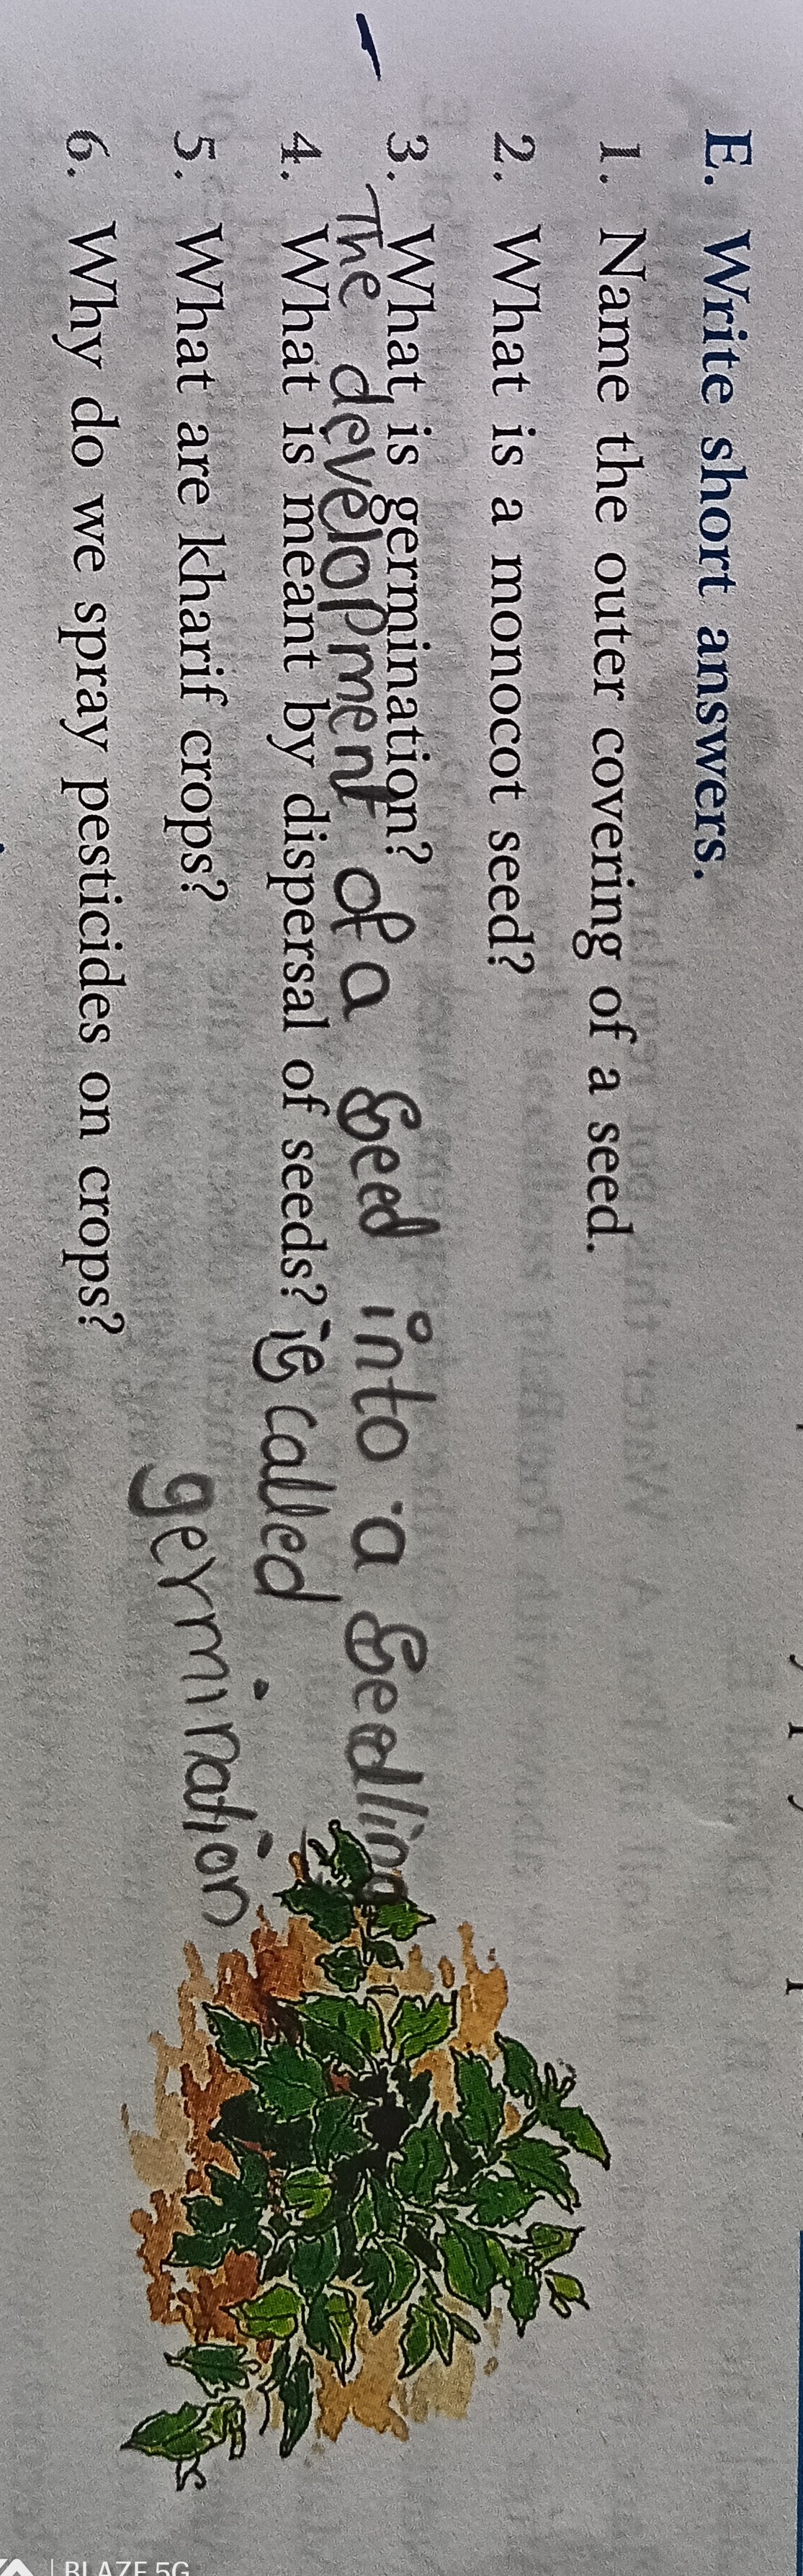 E. Write short answers.
1. Name the outer covering of a seed.
2. What is a monocot seed?
3. What is germination?
The development of a seed into a seedling
4. What is meant by dispersal of seeds?
is called
5. What are kharif crops?
germination
6. Why do we spray pesticides on crops?
BLAZE 5G